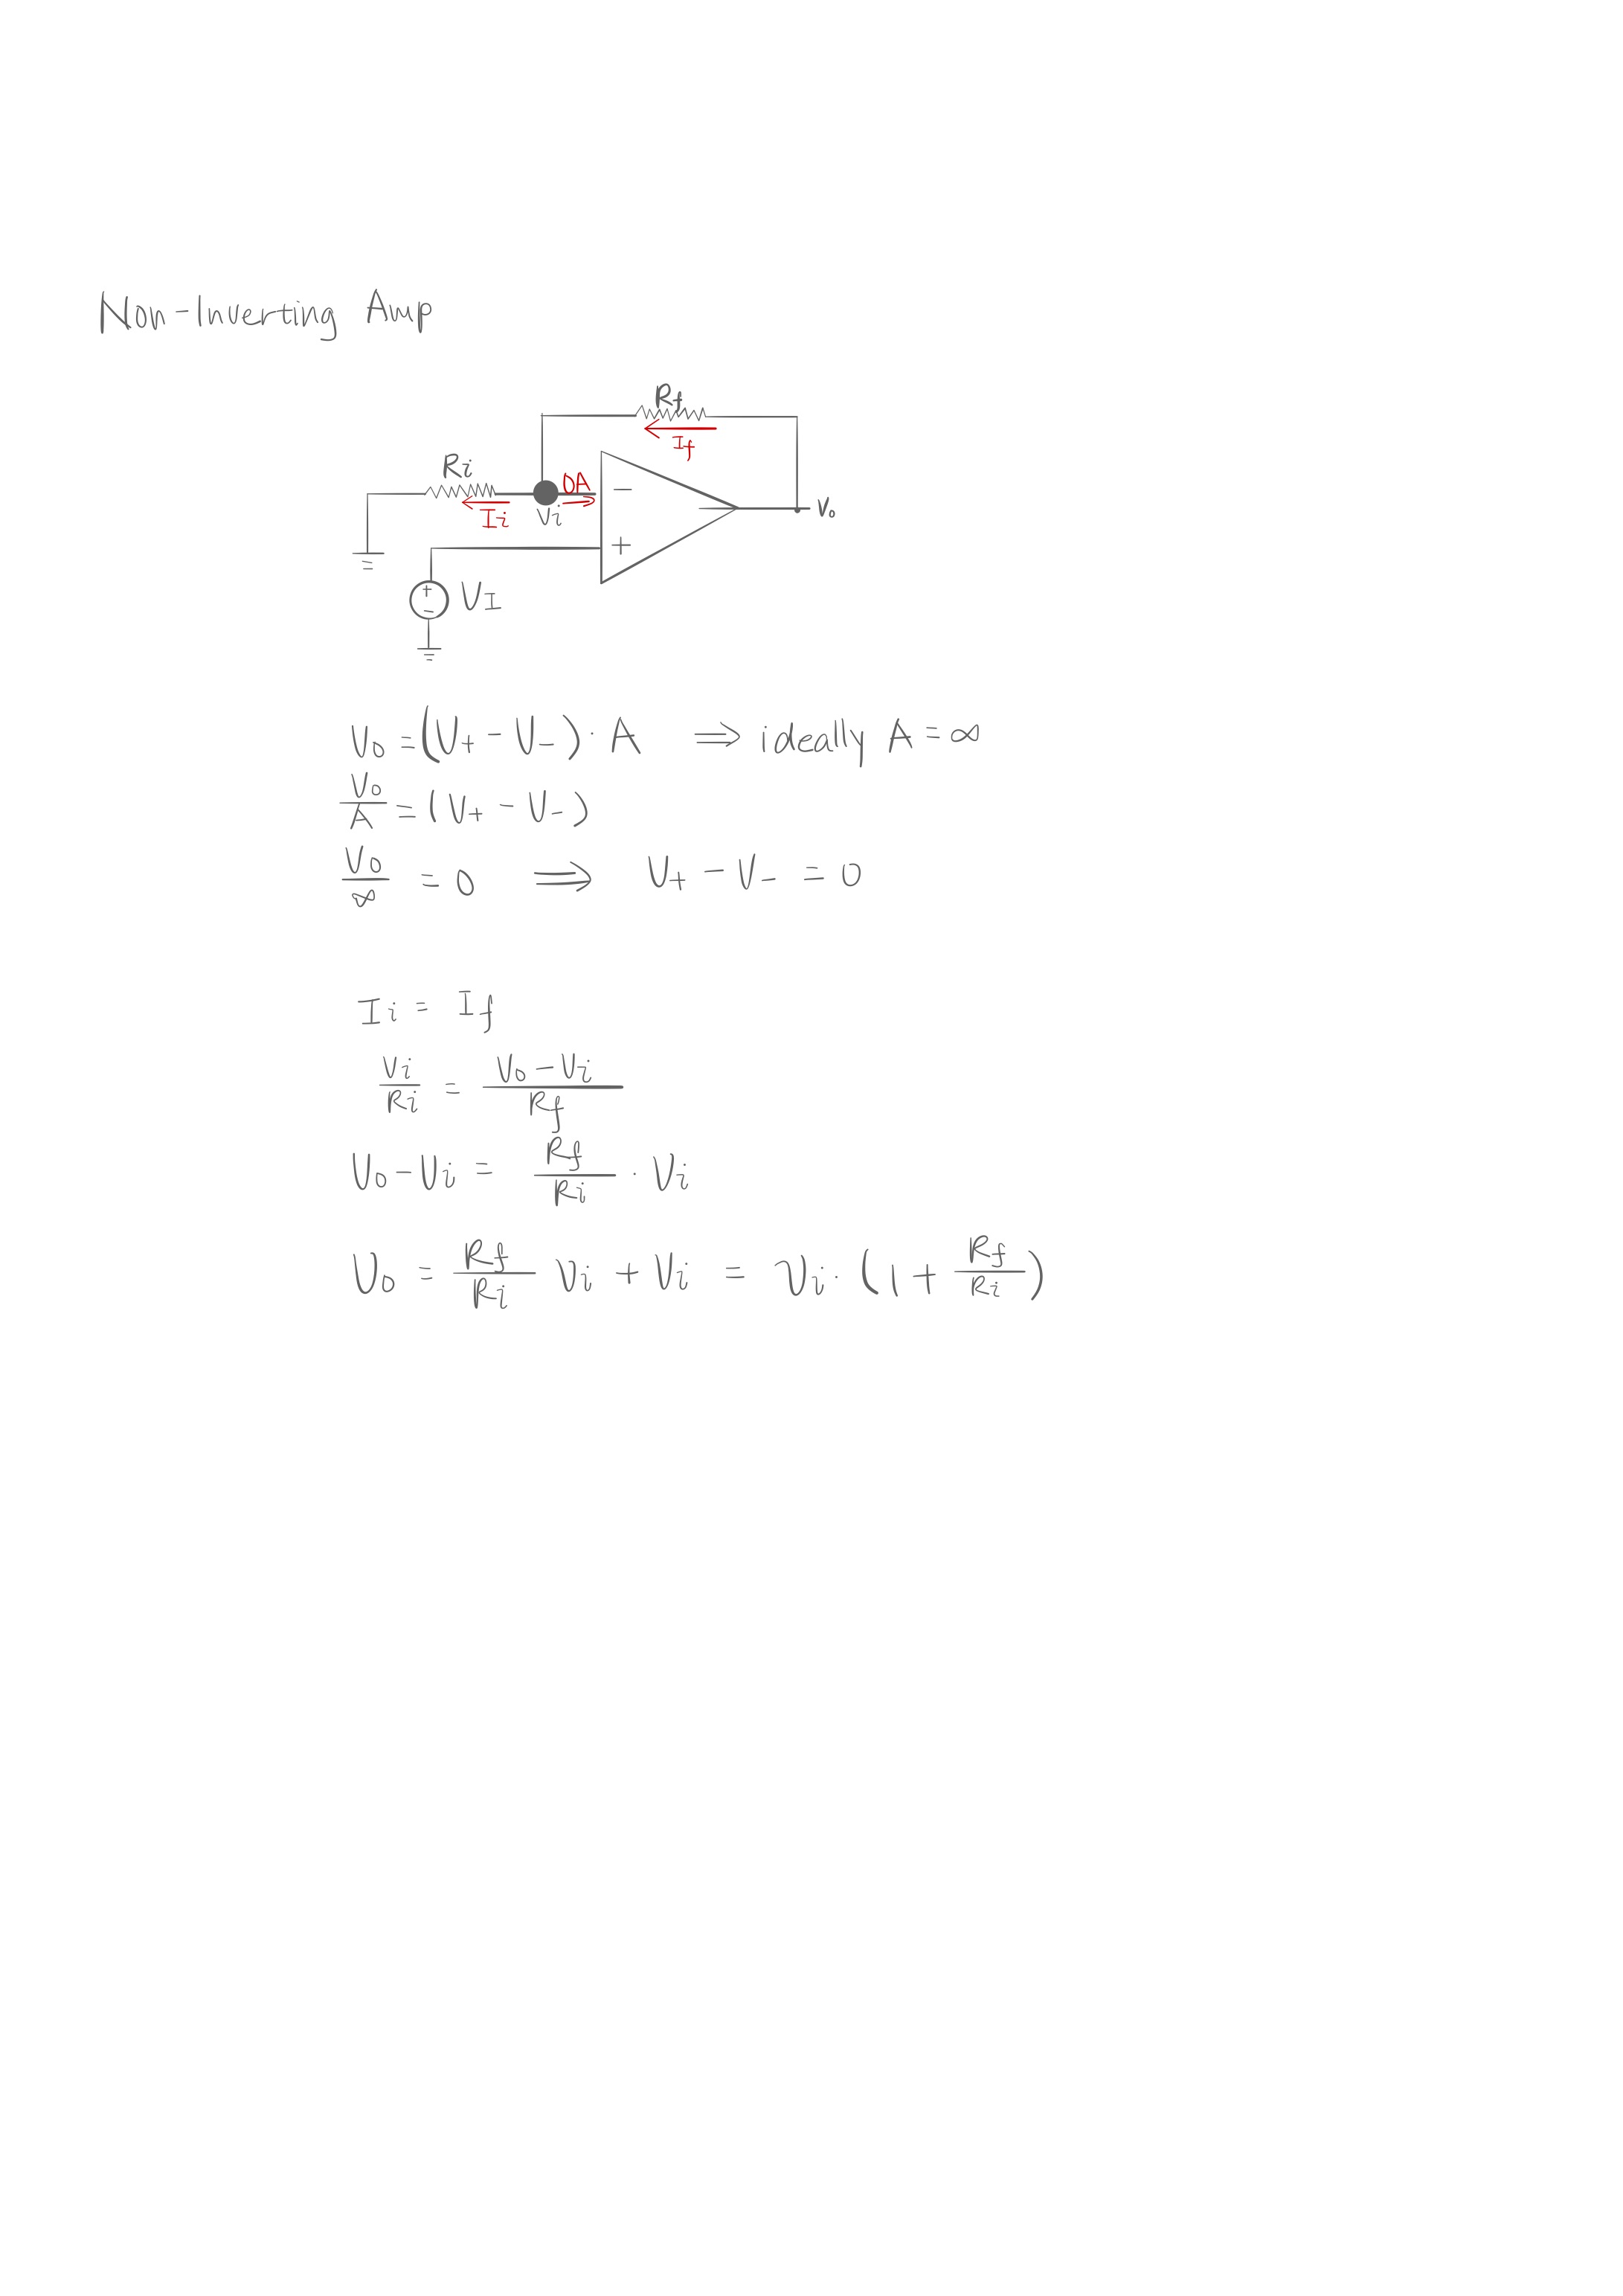 Non-Inverting Amp
Rf
If
Ri
0A
Ii
Vi
−
+
Vo
+
−
VI
Vo = (V+ − V−) · A ⇒ ideally A = ∞
Vo/A = (V+ − V−)
Vo/∞ = 0 ⇒ V+ − V− = 0
Ii = If
Vi/Ri = (Vo − Vi)/Rf
Vo − Vi = Rf/Ri · Vi
Vo = Rf/Ri Vi + Vi = Vi · (1 + Rf/Ri)